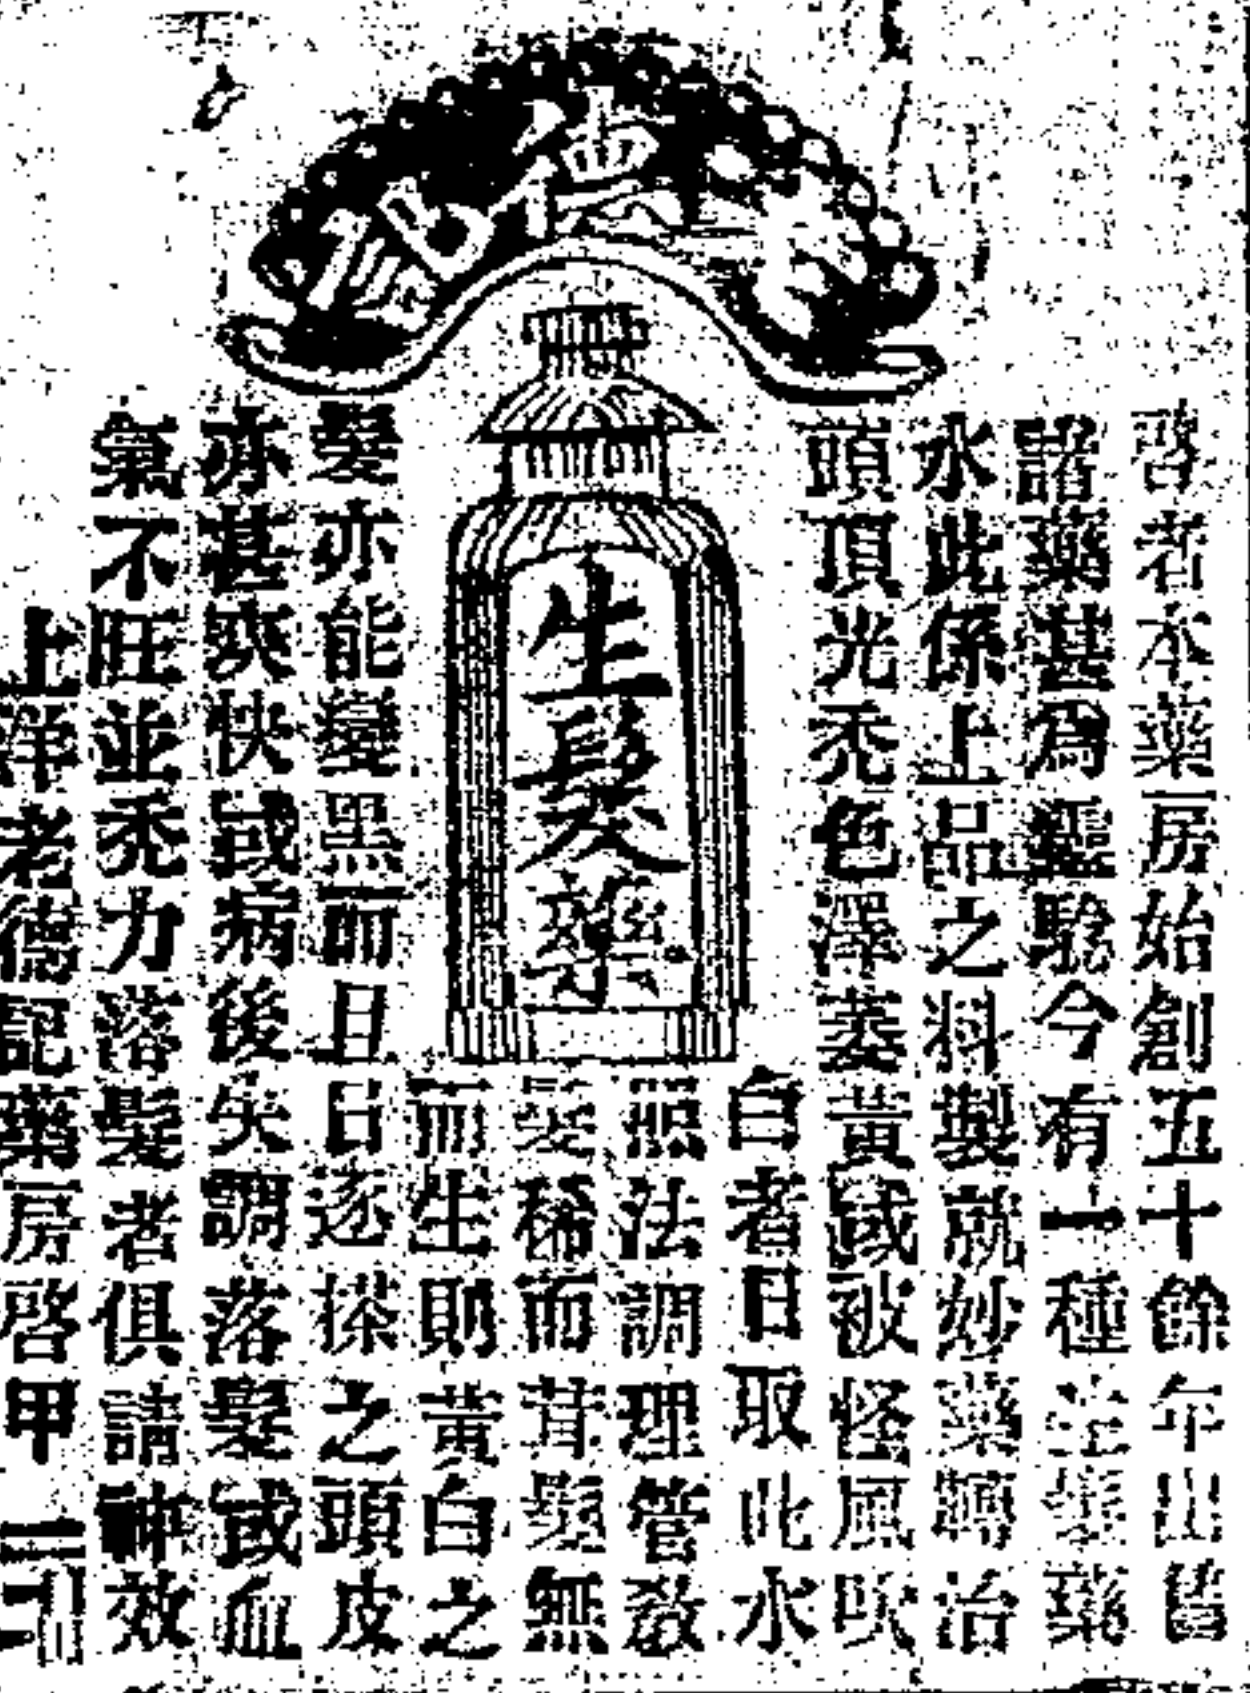 老德記
生髮藥
啓者本藥房始創五十餘年出售
諸藥甚爲靈驗今有一種生髮藥
水此係上品之料製就妙藥專治
頭頂光禿色澤萎黃或被怪風吹
白者日取此水
照法調理管教
髮稀而茸髮無
而生則黃白之
髮亦能變黑而且日逐搽之頭皮
亦甚爽快或病後失調落髮或血
氣不旺並禿力落髮者俱請神效
上洋老德記藥房啓甲